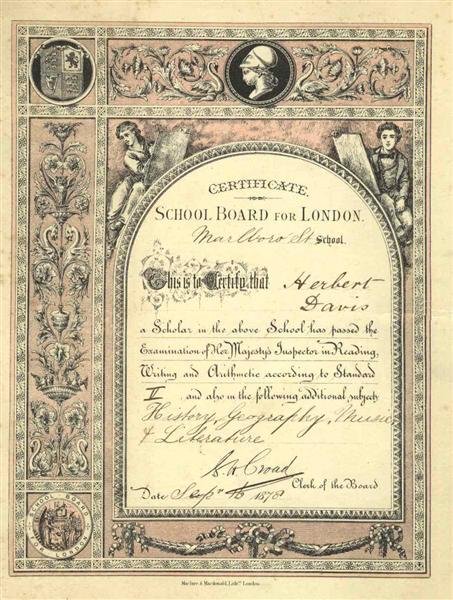 CERTIFICATE.
SCHOOL BOARD FOR LONDON.
Marlboro St School.
This is to Certify that Herbert
Davis
a Scholar in the above School has passed the
Examination of Her Majesty's Inspector in Reading,
Writing and Arithmetic according to Standard
II and also in the following additional subjects
History, Geography, Music
& Literature
Clerk of the Board
Date Sepr 16 1878
SCHOOL BOARD
FOR LONDON
Maclure & Macdonald, Lith. London.